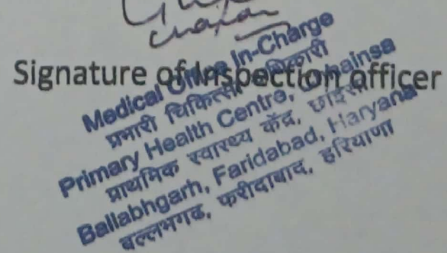 Signature of Inspection officer
Medical Officer In-Charge
प्रभारी चिकित्सा अधिकारी
Primary Health Centre, Chhainsa
प्राथमिक स्वास्थ्य केंद्र, छांइसा
Ballabhgarh, Faridabad, Haryana
बल्लभगढ, फरीदाबाद, हरियाणा